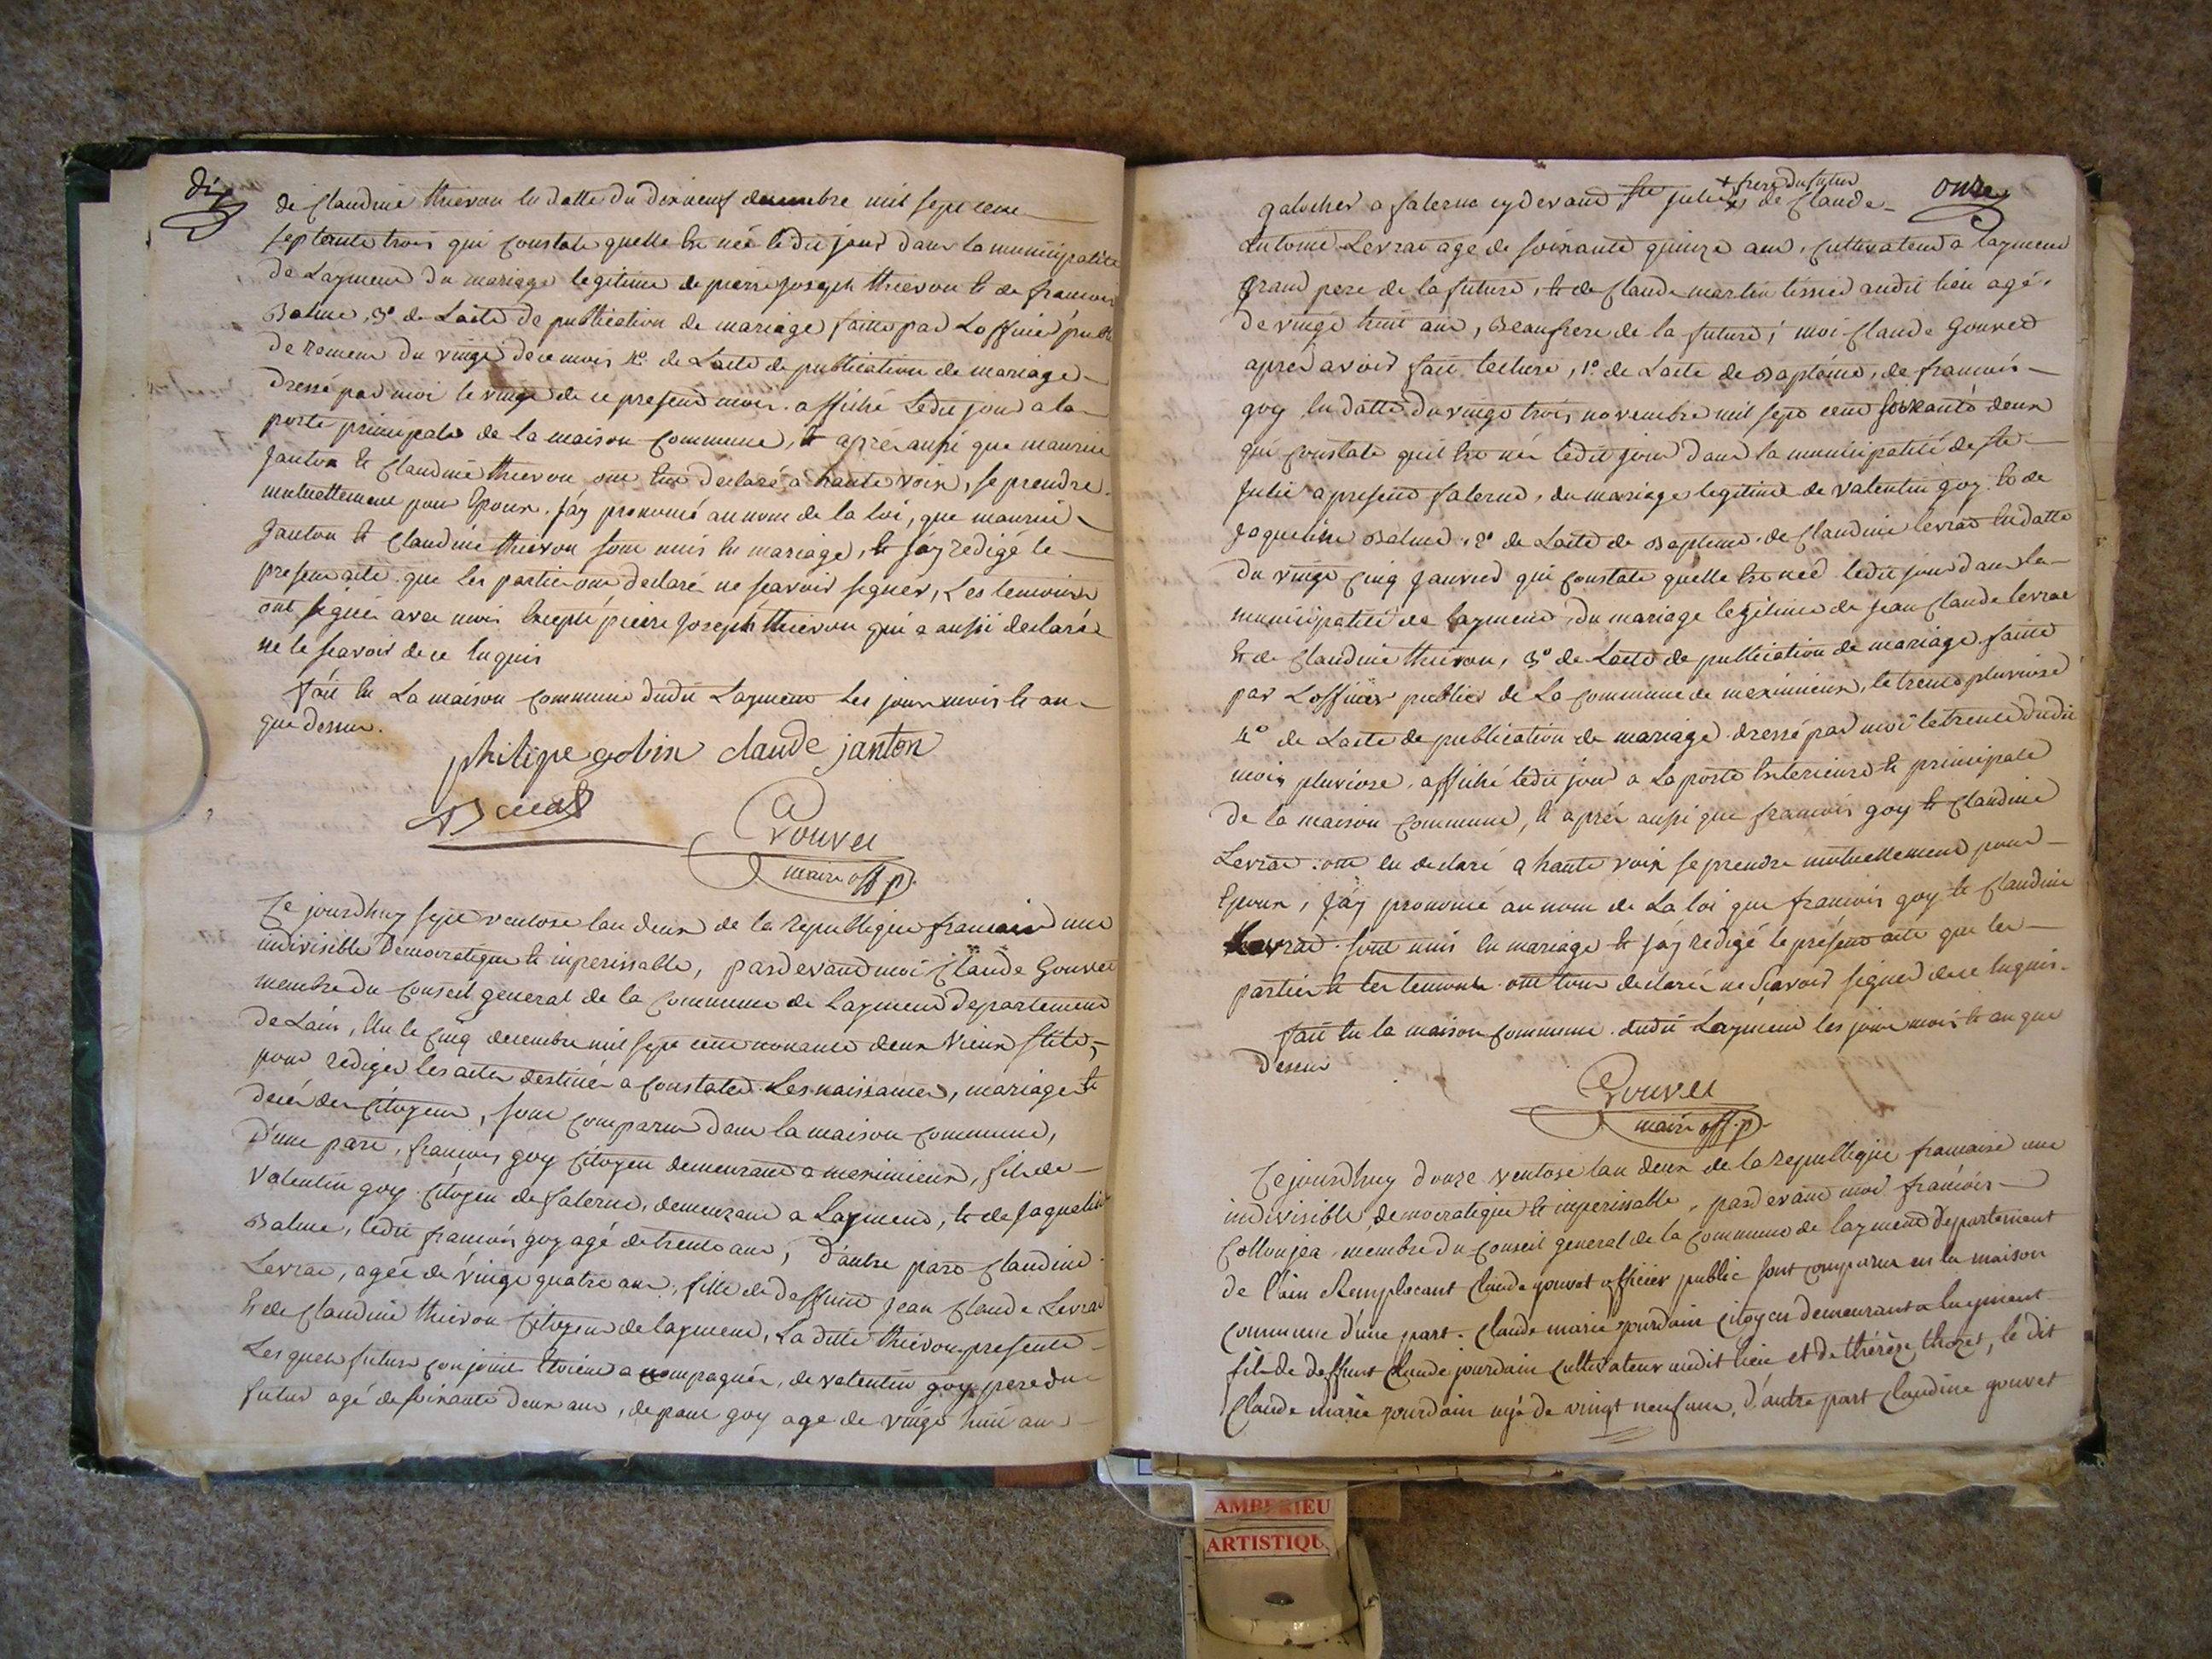 dix
de Claudine thievon en datte du dixneuf decembre mil sept cent
septente trois qui constate quelle est née ledit jour dans la municipalité
de Layment du mariage legitime de pierre joseph thievon et de francoise
Balme, 3º de Lacte de publication de mariage faitte par Lofficier public
de remen du vingt de ce mois 4º de Lacte de publication de mariage
dressé par moi le vingt de ce present mois affiché ledit jour a la
porte principale de la maison commune, et aprés aussi que maurice
janton et Claudine thievon ont eu declaré a haute voix, se prendre
mutuellement pour Epoux. j'ay prononcé au nom de la loi, que maurice
janton et Claudine thievon sont unis en mariage, et j'ay redigé le
present acte que les parties ont declaré ne scavoir signer, Les temoins
ont signé avec moi Excepté pierre joseph thievon qui a aussi declaré
ne le scavoir de ce Enquis
fait en La maison Commune dudit Layment Les jour mois et an
que dessus.
philipe gobin claude janton
Gouvet
maire off. p.
Ce jourdhuy sept ventose lan deux de la republique francaise une
indivisible democratique et imperissable, pardevant moi Claude Gouvet
membre du Conseil general de la Commune de Layment departement
de Lain, Elu le Cinq decembre mil sept cent nonante deux vieux stile,
pour rediger les actes destinés a constater Les naissances, mariage et
decés des Citoyens, sont comparus dans la maison commune,
d'une part, francois goy Citoyen demeurant a meximieux, fils de
Valentin goy Citoyen de falerne, demeurant a Layment, et de jaqueline
Balme, ledit francois goy agé de trente ans, d'autre part Claudine
Levrat, agée de vingt quatre ans, fille de deffunt jean Claude Levrat
et de Claudine thievon Citoyenne de layment, La ditte thievon presente
Les quels futurs conjoints Etoient acompagnés, de valentin goy pere du
futur agé de soixante deux ans, de paul goy age de vingt huit ans
onze
+ frere du futur
galocher a falerne cy devant ste julie + et de Claude
Antoine Levrat agé de soixante quinze ans, cultivateur a layment
Grand pere de la future, et de Claude martin tissier audit lieu agé
de vingt huit ans, Beaufrere de la future; moi Claude Gouvet
apres avoir fait lecture, 1º de Lacte de Baptéme, de francois
goy en datte du vingt trois novembre mil sept cent soixante deux
qui constate quil est né ledit jour dans la municipalité de ste
julie a present falerne, du mariage legitime de valentin goy et de
jaqueline Balme. 2º de Lacte de Baptême de Claudine levrat En datte
du vingt Cinq janvier qui constate quelle est née ledit jour dans la
municipalité de layment, du mariage legitime de jean Claude levrat
et de Claudine thievon, 3º de Lacte de publication de mariage faitte
par Lofficier public de La commune de meximieux, le trente pluviose
4º de Lacte de publication de mariage dressé par moi le trente dudit
mois pluviose, affiché ledit jour a La porte Exterieure et principale
de la maison commune, et aprés aussi que francois goy et Claudine
Levrat ont eu declaré a haute voix se prendre mutuellement pour
Epoux, j'ay prononcé au nom de La loi que francois goy et Claudine
Levrat sont unis en mariage et j'ay redigé le présent acte que les
parties et les temoins ont tous declarés ne Scavoir signer de ce Enquis.
fait en la maison commune dudit Layment les jour mois et an que
dessus
Gouvet
maire off. p.
Ce jourdhuy douze ventose lan deux de la republique francaise une
indivisible democratique et imperissable, pardevant moi francois
Collonjea, membre du Conseil general de la Commune de layment departement
de l'ain Remplacant Claude gouvet officier public sont comparus en la maison
commune d'une part. Claude marie jourdain Citoyen demeurant a layment
fils de deffunt Claude jourdain cultivateur audit lieu et de thérèse thozet, le dit
Claude marie jourdain agé de vingt neuf ans, d'autre part Claudine gouvet
AMBERIEU
ARTISTIQU